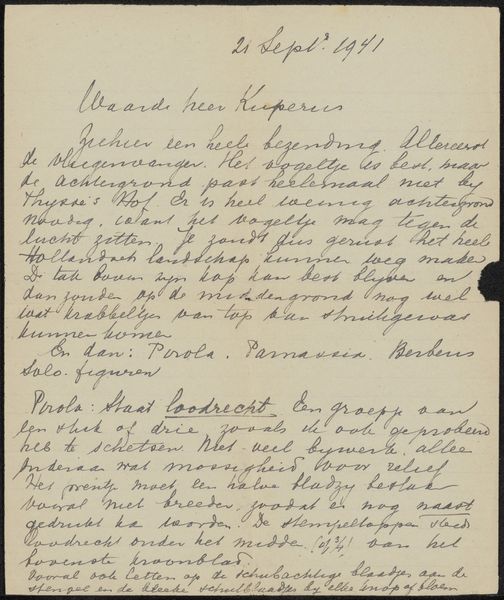 21 Septr. 1941
Waarde heer Kuperus
Ziehier een heele bezending. Allereerst
de vliegenvanger. Het vogeltje is best, maar
de achtergrond past heelemaal niet bij
Thysse's Hof. Er is heel weinig achtergrond
noodig, want het vogeltje mag tegen de
lucht zitten. Je zoudt dus gerust het heele
Hollandsch landschap kunnen weg maken
De tak boven zijn kop kan best blijven en
dan zouden op de middengrond nog wel
wat krabbeltjes van top van struikgewas
kunnen komen
En dan: Pirola. Parnassia. Berberis
solo figuren
Pirola: Staat loodrecht. Een groepje van
een stuk of drie, zooals ik ook geprobeerd
heb te schetsen. Niet veel bijwerk, alleen
onderaan wat mossigheid voor relief
Het prentje moet een halve bladzy beslaan
vooral niet breeder, zoodat er nog naast
gedrukt kan worden. De stempeltoppen steeds
loodrecht onder het midden van het
bovenste kroonblad.
Vooral ook letten op de schubachtige blaadjes aan de
stengel en de bleeke schutblaadjes bij elke knop of bloem